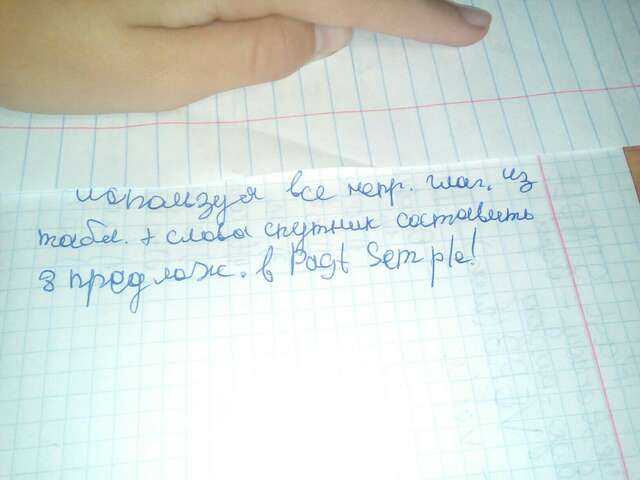 используя все непр. глаг. из
табл. + слова спутник составить
8 предлож. в Past Semple!